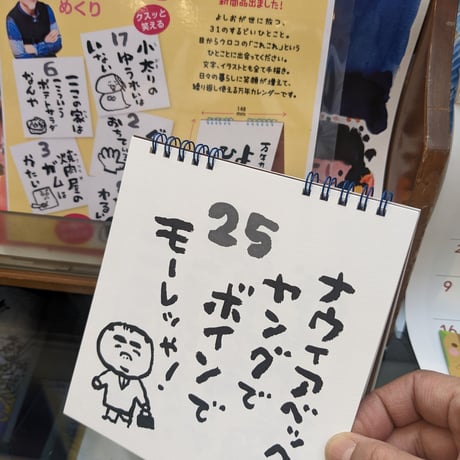 めくり
クスッと
笑える
新商品出ました!
よしおが世に放つ、
31のするどいひとこと。
目からウロコの「これこれ」という
ひとことに出会ってください。
文字、イラストとも全て手描き。
日々の暮らしに笑顔が増えて、
繰り返し使える万年カレンダーです。
148
mm
17
小太りの
ゆうれいは
いない
6
ここの家は
こういう
ポテトサラダ
なんや
3
焼肉屋の
ガムは
かたい
2
25
ナウィアベック
ヤングで
ボインで
モーレツや!
2
9
16